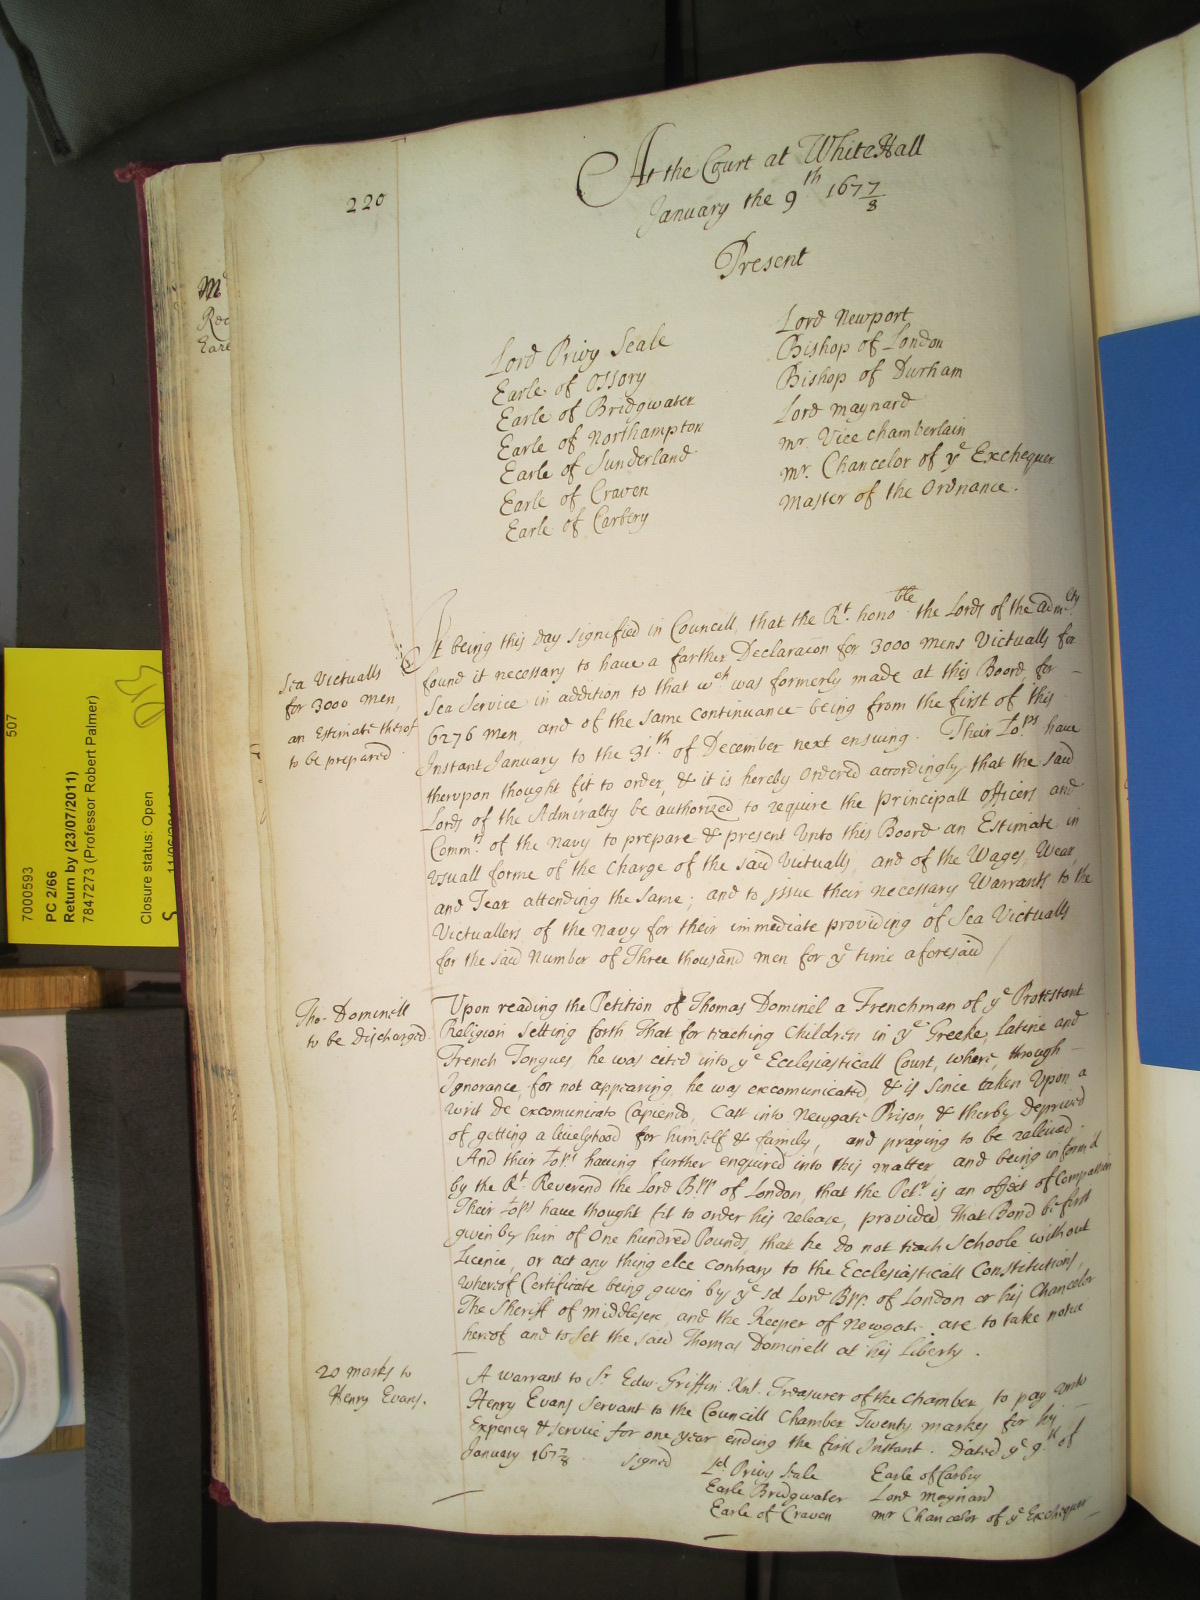 220
At the Court at WhiteHall
January the 9th 167 7/8
Present
Lord Privy Seale
Earle of Ossory
Earle of Bridgwater
Earle of Northampton
Earle of Sunderland
Earle of Craven
Earle of Carbery
Lord Newport
Bishop of London
Bishop of Durham
Lord Maynard
Mr. Vice Chamberlain
Mr. Chancelor of ye Exchequer
Master of the Ordnance.
Sea Victualls
for 3000 men,
an Estimate therof
to be prepared
It being this day signified in Councill, that the Rt. honoble the Lords of the Admlty
found it necessary to have a farther Declaracon for 3000 mens Victualls for
Sea Service in addition to that wch was formerly made at this Board, for
6276 men, and of the same continuance being from the first of this
Instant January to the 31th of December next ensuing. Their Lopps have
therupon thought fit to order, & it is hereby Ordered accordingly, that the said
Lords of the Admiralty be authorized to require the principall officers and
Commrs of the Navy to prepare & present Unto this Board an Estimate in
Usuall forme of the Charge of the said Victualls, and of the Wages, Wear,
and Tear attending the Same; and to issue their necessary Warrants to the
Victuallers, of the Navy for their immediate providing of Sea Victualls
for the said Number of Three thousand men for ye time aforesaid
Tho. Dominell
to be discharged
Upon reading the Petition of Thomas Dominel a Frenchman of ye Protestant
Religion setting forth That for teaching Children in ye Greeke, Latine and
French Tongues, he was cited into ye Ecclesiasticall Court, where, through
Ignorance, for not appearing, he was excomunicated, & is since taken Upon a
writ De excomunicato Capiendo, Cast into Newgate Prison, & therby Deprived
of getting a livelyhood for himself & family, and praying to be releived.
And their Lopps having further enquired into this matter and being inform'd
by the Rt. Reverend the Lord Bpp of London, that the Petr. is an object of Compassion
Their Lopps have thought fit to order his release, provided, that Bond be first
given by him of One hundred Pounds, that he do not teach Schoole without
Licence, or act any thing else contrary to the Ecclesiasticall Constitutions,
wherof Certificate being given by ye sd Lord Bpp. of London or his Chancelor
The Sheriff of Middlesex, and the Keeper of Newgate are to take notice
herof and to set the said Thomas Dominell at his Liberty.
20 marks to
Henry Evans.
A Warrant to Sr. Edw. Griffin Knt. Treasurer of the Chamber, to pay unto
Henry Evans Servant to the Councill Chamber Twenty markes for his
Expences & Service for one year ending the first Instant. Dated ye 9th of
January 167 7/8 Signed
Ld Privy Seale
Earle Bridgwater
Earle of Craven
Earle of Carbry
Lord Maynard
Mr Chancelor of ye Exchequer
7000593
507
PC 2/66
Return by (23/07/2011)
7847273 (Professor Robert Palmer)
Closure status: Open
Mr